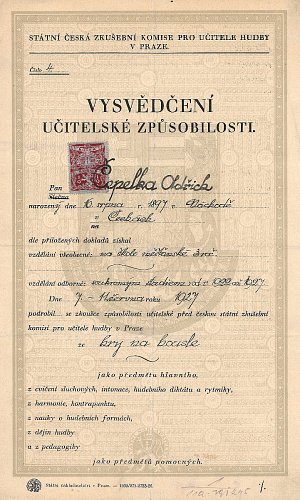 STÁTNÍ ČESKÁ ZKUŠEBNÍ KOMISE PRO UČITELE HUDBY
V PRAZE.
Číslo 4
VYSVĚDČENÍ
UČITELSKÉ ZPŮSOBILOSTI.
Pan Čepelka Oldřich
Slečna
narozený dne 10. října 1897 v
v Čechách
na
dle přiložených dokladů získal
vzdělání všeobecné: na škole měšťanské
vzdělání odborné: soukromým studiem od r. 1922 až 1927
Dne 7. června roku 1927
podrobil se zkoušce způsobilosti učitelské před českou státní zkušební
komisí pro učitele hudby v Praze
ze hry na housle
jako předmětu hlavního,
z cvičení sluchových, intonace, hudebního diktátu a rytmiky,
z harmonie, kontrapunktu,
z nauky o hudebních formách,
z dějin hudby
a z pedagogiky
jako předmětů pomocných.
Státní nakladatelství v Praze.